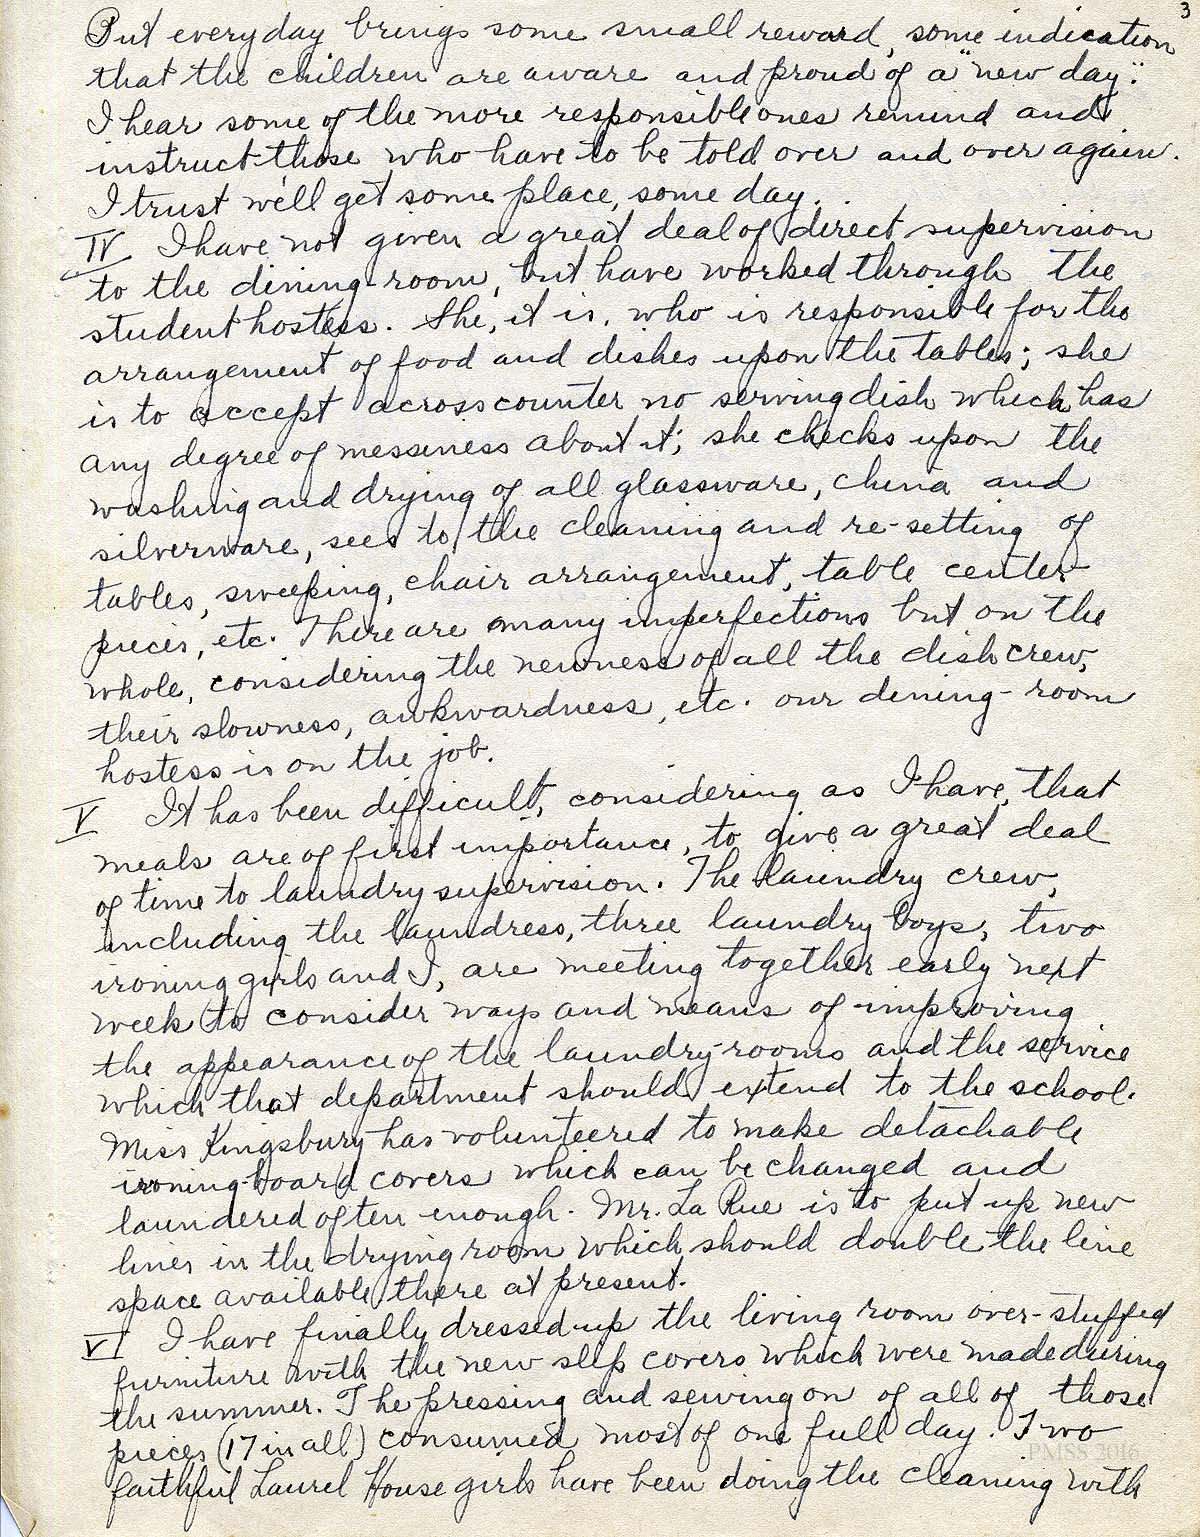 3
But everyday brings some small reward, some indication
that the children are aware and proud of a "new day".
I hear some of the more responsible ones remind and
instruct those who have to be told over and over again.
I trust we'll get some place, some day.
IV I have not given a great deal of direct supervision
to the dining-room, but have worked through the
student hostess. She, it is, who is responsible for the
arrangement of food and dishes upon the tables; she
is to accept across counter no serving dish which has
any degree of messiness about it; she checks upon the
washing and drying of all glassware, china and
silverware, sees to the cleaning and re-setting of
tables, sweeping, chair arrangement, table center-
pieces, etc. There are many imperfections but on the
whole, considering the newness of all the dish crew,
their slowness, awkwardness, etc. our dining-room
hostess is on the job.
V It has been difficult, considering as I have, that
meals are of first importance, to give a great deal
of time to laundry supervision. The laundry crew,
including the laundress, three laundry boys, two
ironing girls and I, are meeting together early next
week to consider ways and means of improving
the appearance of the laundry-rooms and the service
which that department should extend to the school.
Miss Kingsbury has volunteered to make detachable
ironing-board covers which can be changed and
laundered often enough. Mr. La Rue is to put up new
lines in the drying room which should double the line
space available there at present.
VI I have finally dressed-up the living room over-stuffed
furniture with the new slip covers which were made during
the summer. The pressing and sewing on of all of those
pieces (17 in all) consumed most of one full day. Two
PMSS 2016
faithful Laurel House girls have been doing the cleaning with